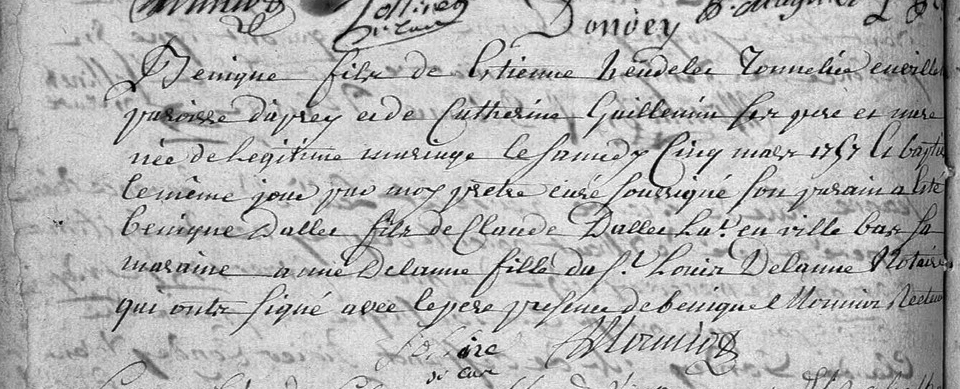 Donvey
Benique fils de Estienne hendelec Tonnelié en ville
paroisse d'aprey et de Catherine Guillemin ses pere et mere
née de legitime mariage le samedy Cinq mars 1757 Et baptis
le même jour par moy pretre curé soussigné son parain a esté
benigne Dallec fils de Claude Dallec Lab. en ville bas sa
maraine anne Delanne fille du Sr. Louis Delanne Notaire
qui onts signé avec le pere presence de benique Monniot Recteur
Monniot